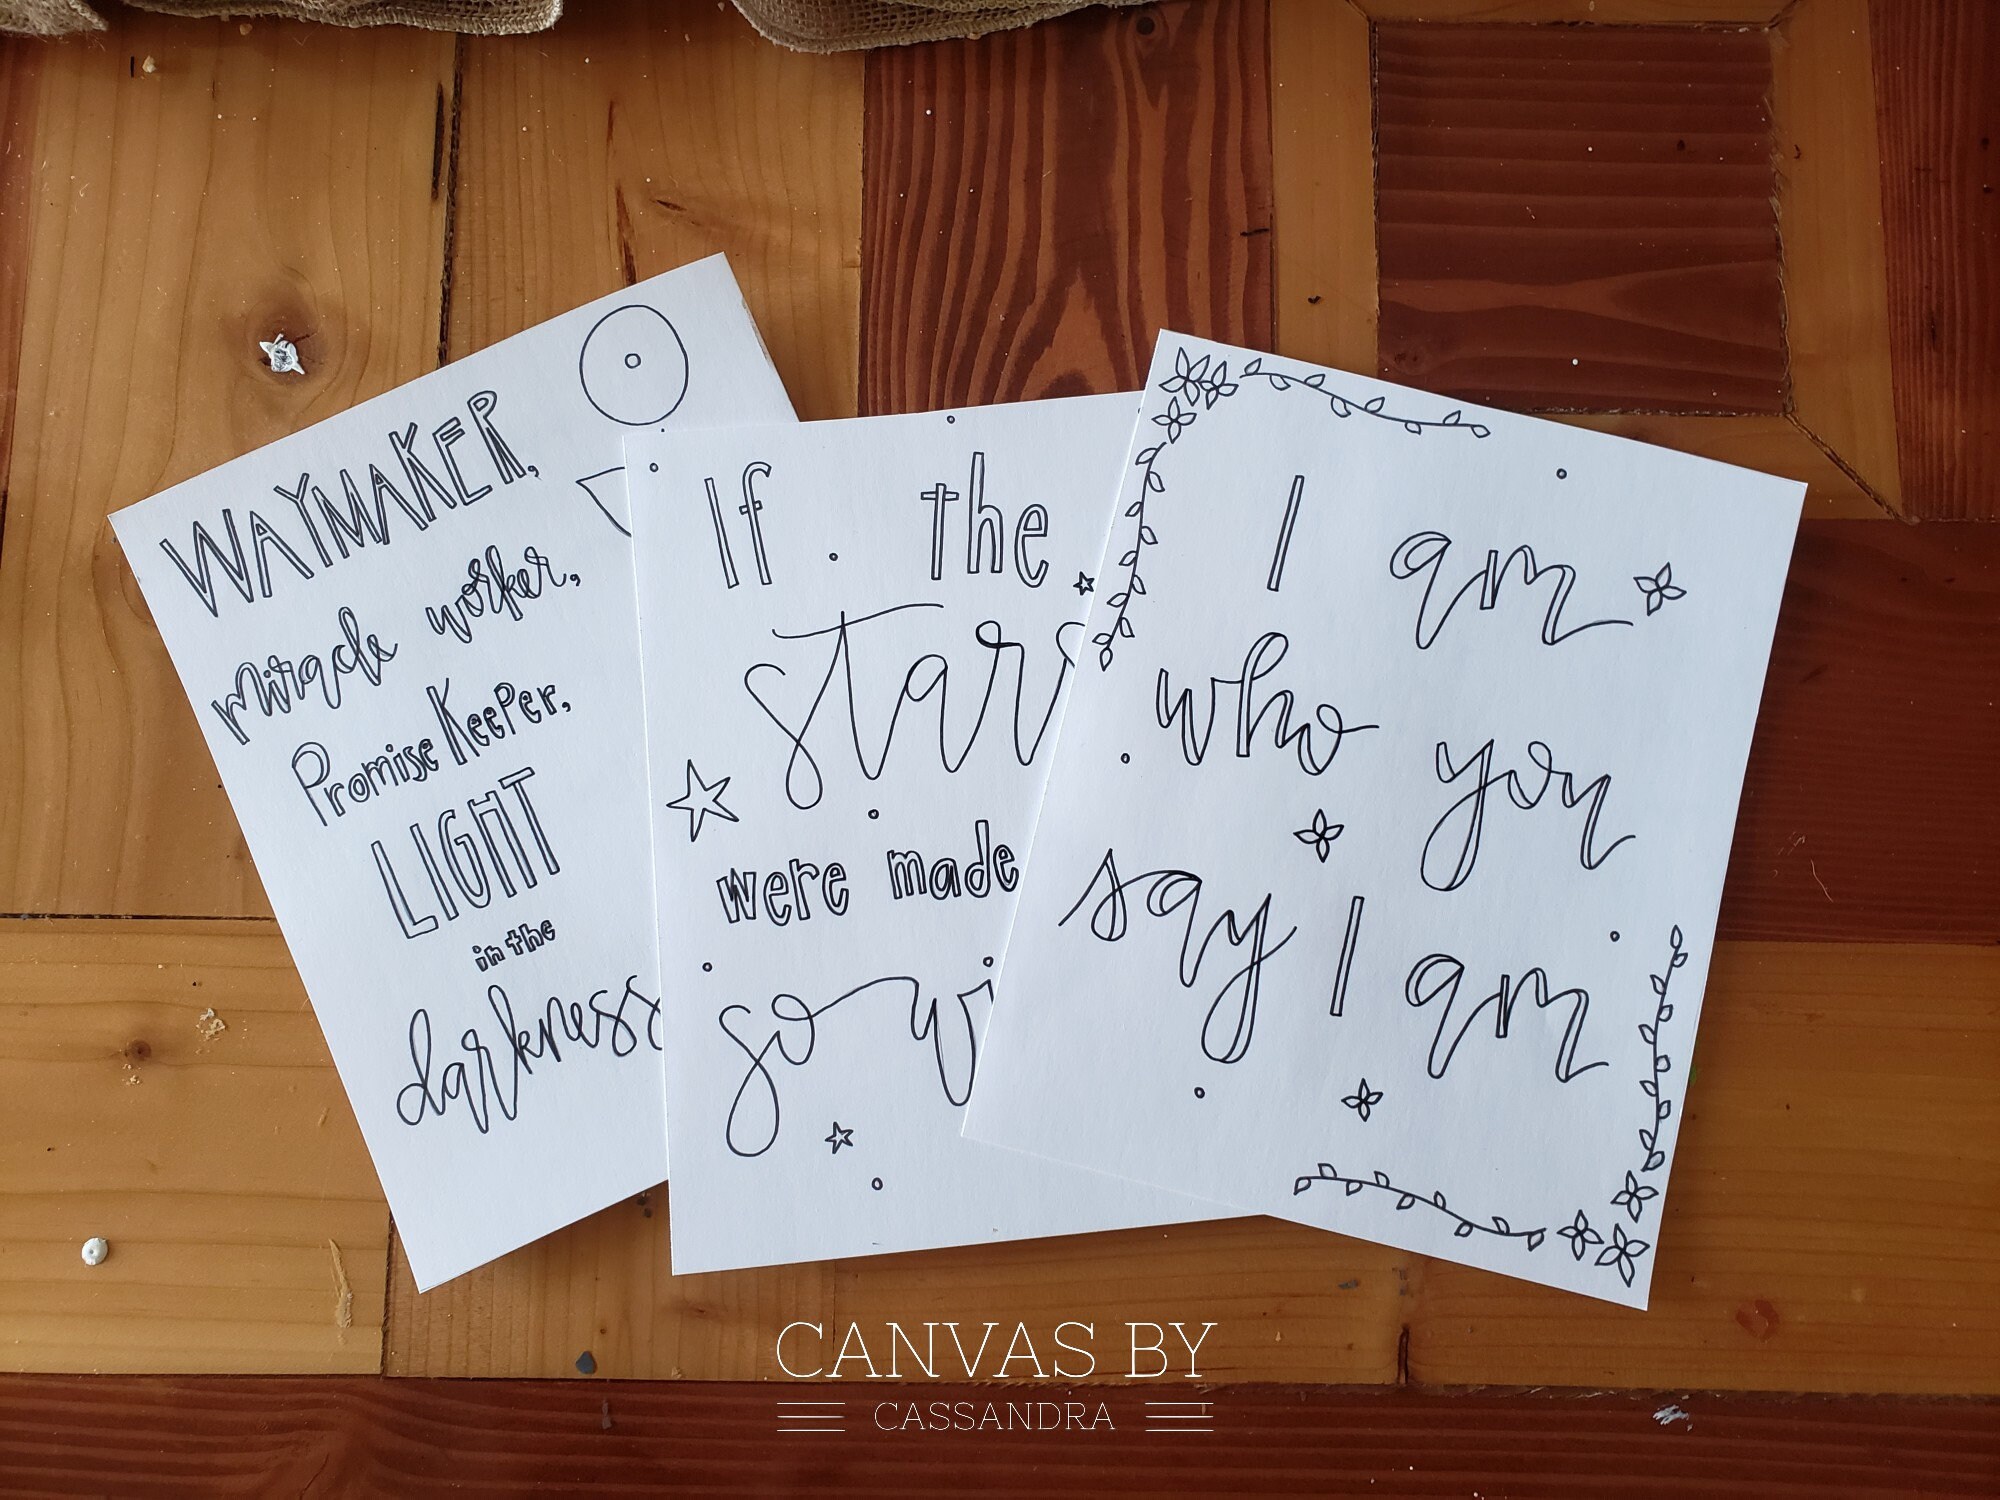 WAYMAKER,
miracle worker,
Promise Keeper,
LIGHT
in the
darkness
If the
stars
were made
so
I am
who you
say I am
CANVAS BY
CASSANDRA